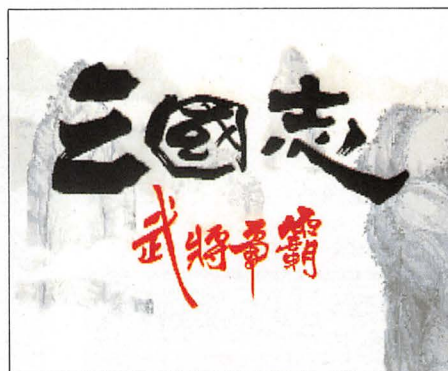 三國志
武將爭霸